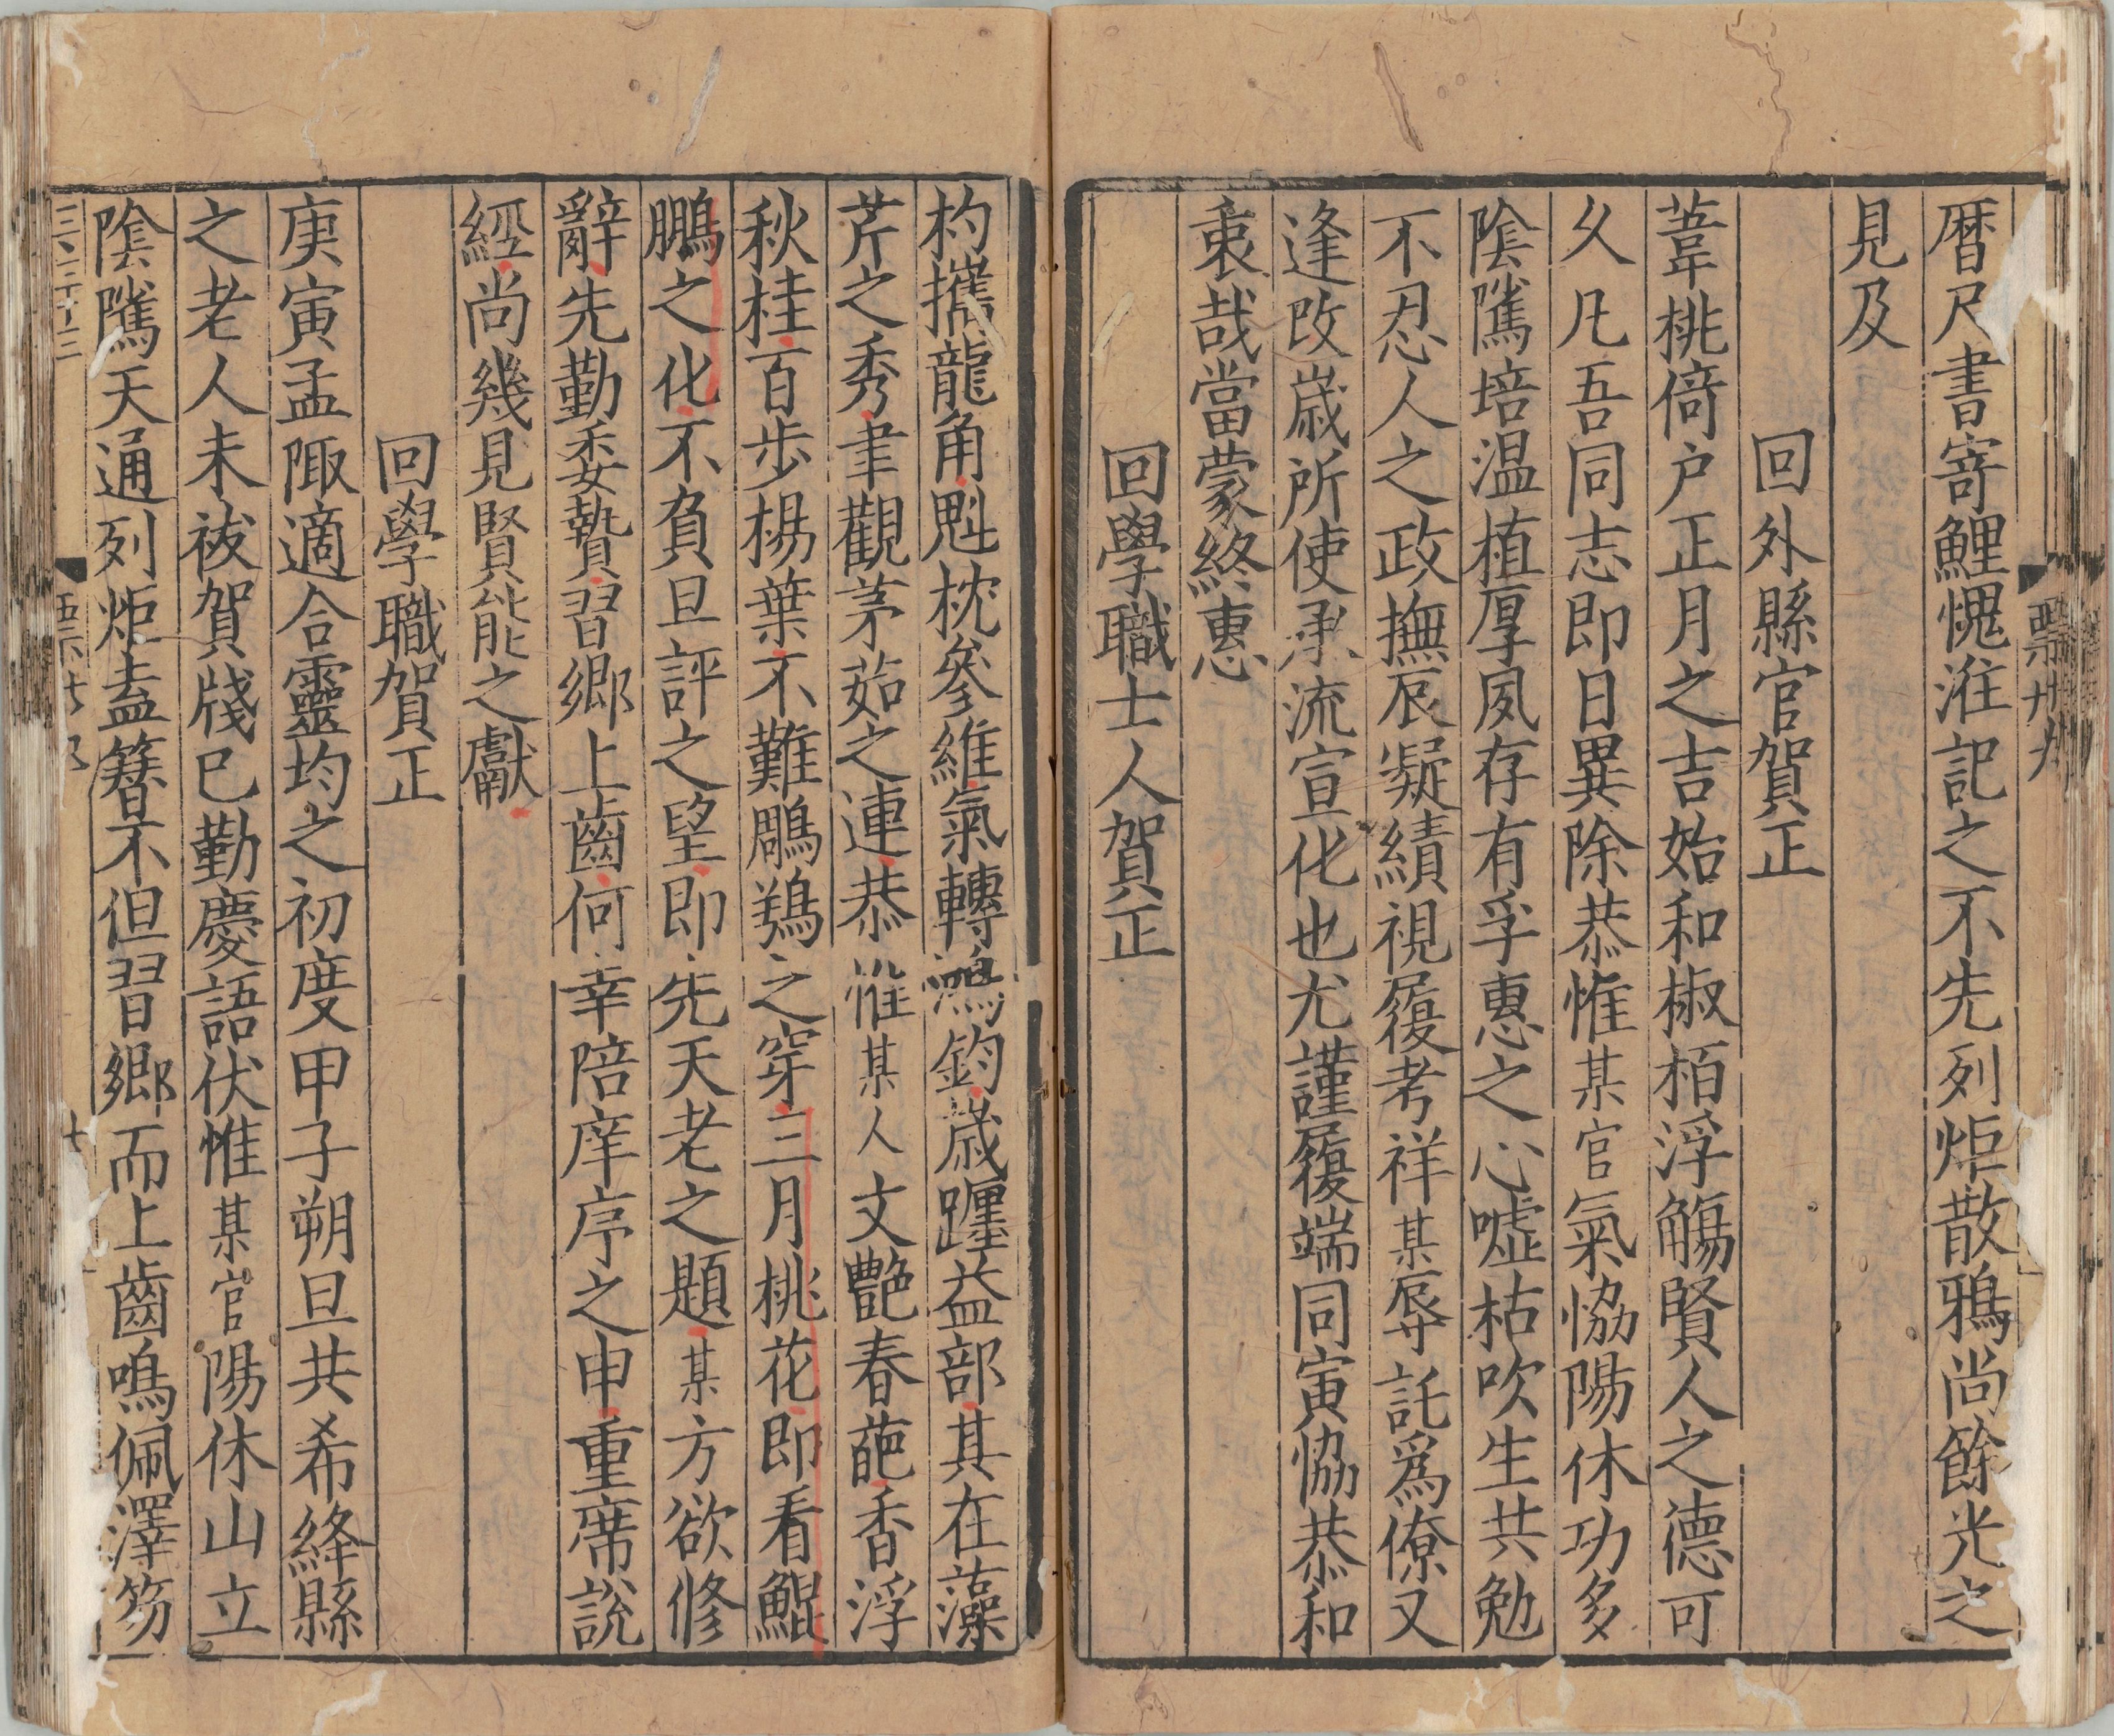 曆尺書寄鯉愧漼記之不先列炬散鴉尚餘光之
見及
回外縣官賀正
葦桃倚户正月之吉始和椒栢浮觴賢人之德可
久凡吾同志即日異除恭惟某官氣協陽休功多
陰隲培温植厚夙存有孚惠之心噓枯吹生共勉
不忍人之政撫辰凝績視履考祥某辱託爲僚又
逢改嵗所使承流宣化也尤謹履端同寅協恭和
衷哉當蒙終惠
回學職士人賀正
杓攜龍角魁枕參維氣轉鴻鈞歲躔益部其在藻
芹之秀聿觀茅茹之連恭惟某人文艷春葩香浮
秋桂百步楊葉不難鵰鶚之穿三月桃花即看鯤
鵬之化不負旦評之望即先天老之題某方欲修
辭先勤委贄習鄉上齒何幸陪庠序之申重席說
經尚幾見賢能之獻
回學職賀正
庚寅孟陬適合靈均之初度甲子朔旦共希絳縣
之老人未祓賀牋已勤慶語伏惟某官陽休山立
陰隲天通列炬盍簪不但習鄉而上齒鳴佩澤笏